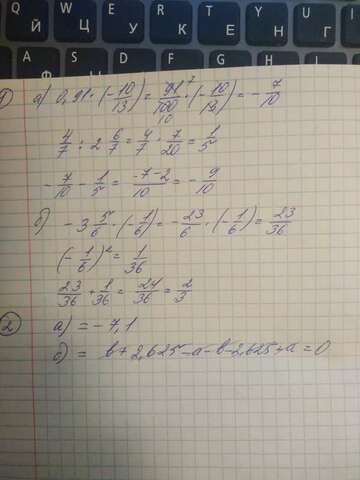 Q W E R T Y U
Й Ц У К Е Н Г
A S D F G H
Ф
1) а) 0,91 · (-10/13) = 91/100 · (-10/13) = -7/10
7
10
4/7 : 2 6/7 = 4/7 · 7/20 = 1/5
-7/10 - 1/5 = -7-2/10 = -9/10
б) -3 5/6 · (-1/6) = -23/6 · (-1/6) = 23/36
(-1/6)² = 1/36
23/36 + 1/36 = 24/36 = 2/3
2) а) = -7,1
б) = в+2,625-а-в-2,625+а=0